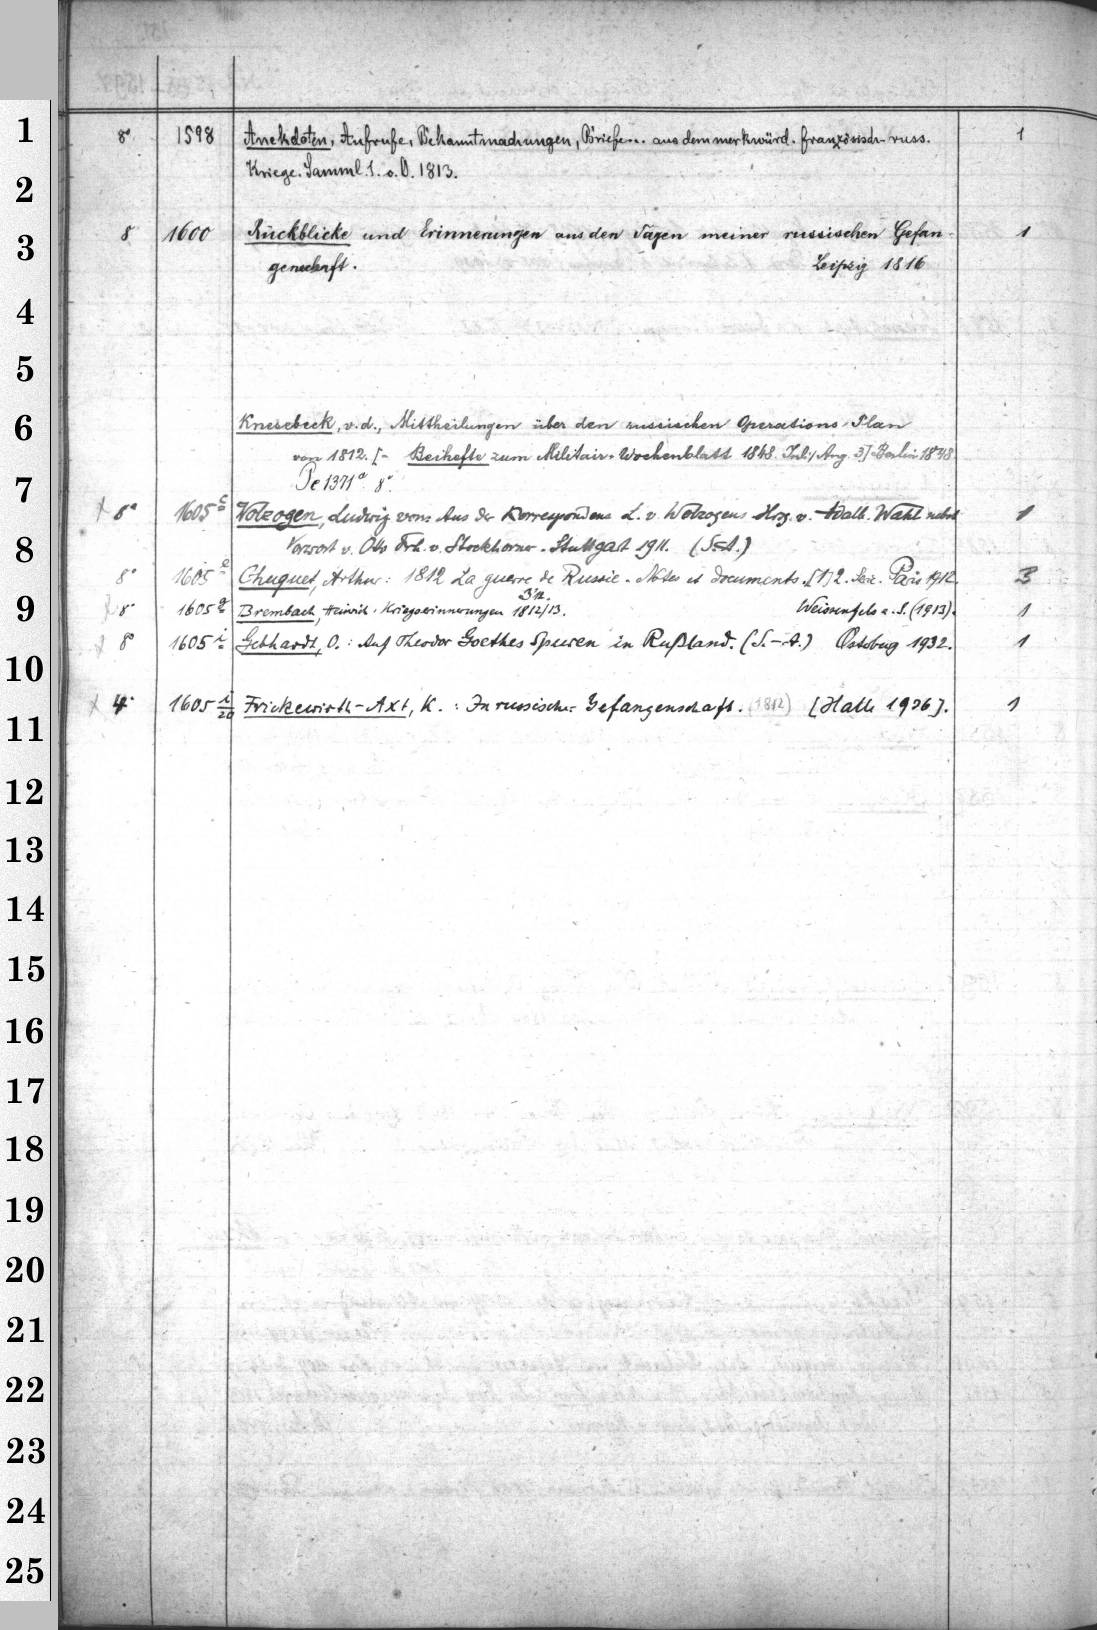 1
8° 1598 Anekdoten, Aufrufe, Bekanntmachungen, Briefe... aus dem merkwürd. französisch-russ. 1
Kriege. Samml. 1. o. O. 1813.
2
3
8 1600 Rückblicke und Erinnerungen aus den Tagen meiner russischen Gefan- 1
genschaft. Leipzig 1816
4
5
6
Knesebeck, v. d., Mittheilungen über den russischen Operations-Plan
von 1812. [= Beihefte zum Militair-Wochenblatt 1848. Berlin 1848.
7
Pe 1371 a 8°.
x 8° 1605 c Wolzogen, Ludwig von: Aus der Korrespondenz L. v. Wolzogens Hrsg. v. Adalb. Wahl nebst 1
8
Vorwort v. Otto Frh. v. Stockhorner. Stuttgart 1911. (S.-A.)
8° 1605 e Chuquet, Arthur: 1812 La guerre de Russie. Notes et documents. [1] 2. 3. Sér. Paris 1912. 3
9
x 8° 1605 g Brembach, Heinrich. Kriegserinnerungen 1812/13. Weissenfels a. S. (1913). 1
x 8° 1605 i Gebhardt, O.: Auf Theodor Goethes Spuren in Rußland. (S.-A.) 1932. 1
10
x 4° 1605 i/20 Frickewirth-Axt, K.: In russischer Gefangenschaft. (1812) [Halle 1926]. 1
11
12
13
14
15
16
17
18
19
20
21
22
23
24
25